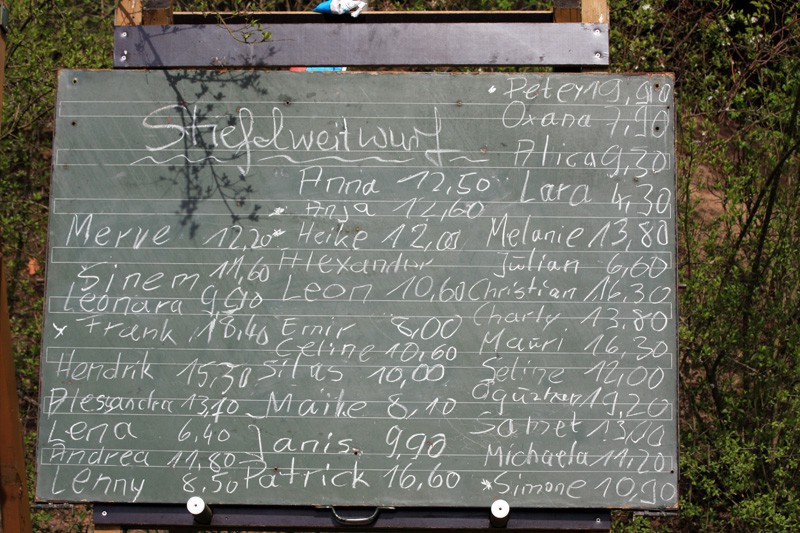 Stiefelweitwurf
Merve 12,20
Sinem 11,60
Leonara 9,90
Frank 18,40
Hendrik 15,30
Alessandra 13,10
Lena 6,40
Andrea 11,80
Lenny 8,50
Anna 12,50
Anja 12,60
Heike 12,00
Alexander
Leon 10,60
Emir 8,00
Celine 10,60
Silas 10,00
Maike 8,10
Janis 9,90
Patrick 16,60
Peter 19,90
Oxana 7,90
Alica 9,30
Lara 4,30
Melanie 13,80
Julian 6,60
Christian 16,30
Charly 13,80
Mauri 16,30
Seline 12,00
19,20
Samet 13,00
Michaela 11,20
Simone 10,90